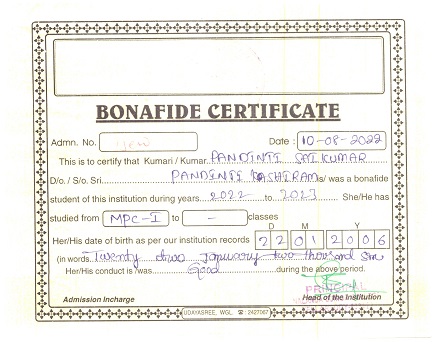 BONAFIDE CERTIFICATE
Admn. No. new Date : 10-08-2022
This is to certify that Kumari / Kumar. PANDINTI SAI KUMAR
D/o. / S/o. Sri. PANDINTI KASHIRAM is/ was a bonafide
student of this institution during years. 2022 to 2023 She/He has
studied from MPC-I to - classes
D M Y
Her/His date of birth as per our institution records 2 2 0 1 2 0 0 6
(in words. Twenty two January two thousand Six
Her/His conduct is /was Good during the above period.
PRINCIPAL
Admission Incharge Head of the Institution
UDAYASREE, WGL. ☎ : 2427067